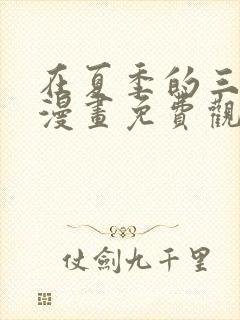 在夏季的三
漫畫免費觀
仗劍九千里